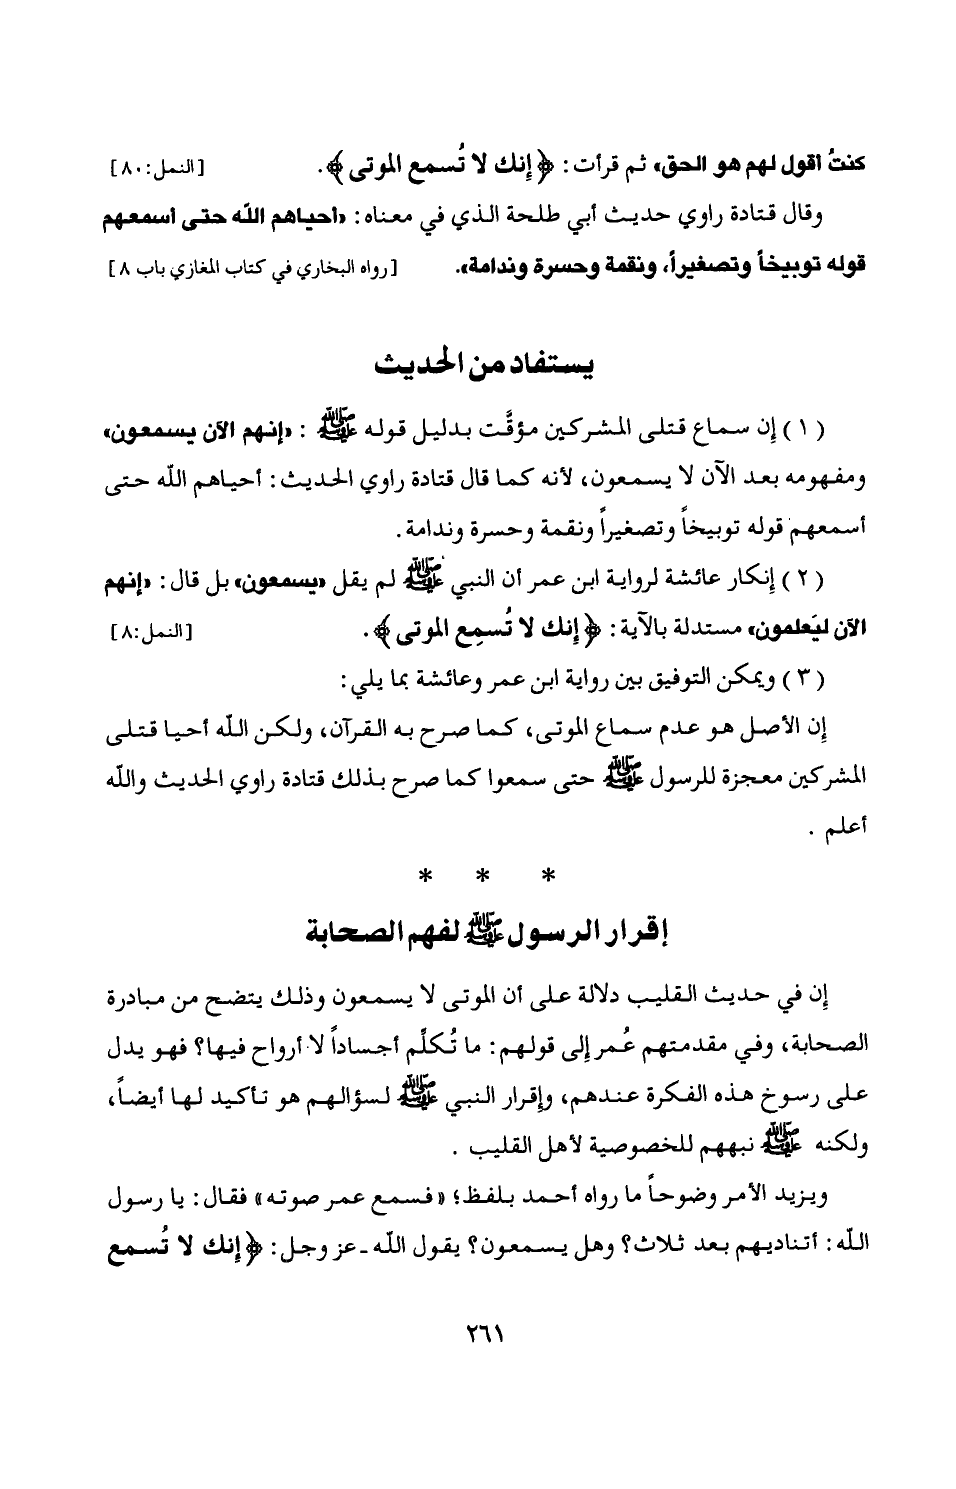 كنتُ أقول لهم هو الحق» ثم قرأت: ﴿إنك لا تُسمع الموتى﴾. [النمل:٨٠]
وقال قتادة راوي حديث أبي طلحة الذي في معناه: «أحياهم الله حتى أسمعهم
قوله توبيخاً وتصغيراً، ونقمة وحسرة وندامة». [رواه البخاري في كتاب المغازي باب ٨]
يستفاد من الحديث
(١) إن سماع قتلى المشركين مؤقَّت بدليل قوله ﷺ : «إنهم الآن يسمعون»
ومفهومه بعد الآن لا يسمعون، لأنه كما قال قتادة راوي الحديث: أحياهم الله حتى
أسمعهم قوله توبيخاً وتصغيراً ونقمة وحسرة وندامة.
(٢) إنكار عائشة لرواية ابن عمر أن النبي ﷺ لم يقل «يسمعون» بل قال: «إنهم
الآن ليَعلمون» مستدلة بالآية: ﴿إنك لا تُسمِع الموتى﴾. [النمل:٨]
(٣) ويمكن التوفيق بين رواية ابن عمر وعائشة بما يلي:
إن الأصل هو عدم سماع الموتى، كما صرح به القرآن، ولكن الله أحيا قتلى
المشركين معجزة للرسول ﷺ حتى سمعوا كما صرح بذلك قتادة راوي الحديث والله
أعلم .
* * *
إقرار الرسول ﷺ لفهم الصحابة
إن في حديث القليب دلالة على أن الموتى لا يسمعون وذلك يتضح من مبادرة
الصحابة، وفي مقدمتهم عُمر إلى قولهم: ما تُكلِّم أجساداً لا أرواح فيها؟ فهو يدل
على رسوخ هذه الفكرة عندهم، وإقرار النبي ﷺ لسؤالهم هو تأكيد لها أيضاً،
ولكنه ﷺ نبههم للخصوصية لأهل القليب .
ويزيد الأمر وضوحاً ما رواه أحمد بلفظ؛ «فسمع عمر صوته» فقال: يا رسول
الله: أتناديهم بعد ثلاث؟ وهل يسمعون؟ يقول الله ـ عز وجل: ﴿إنك لا تُسمع
٢٦١